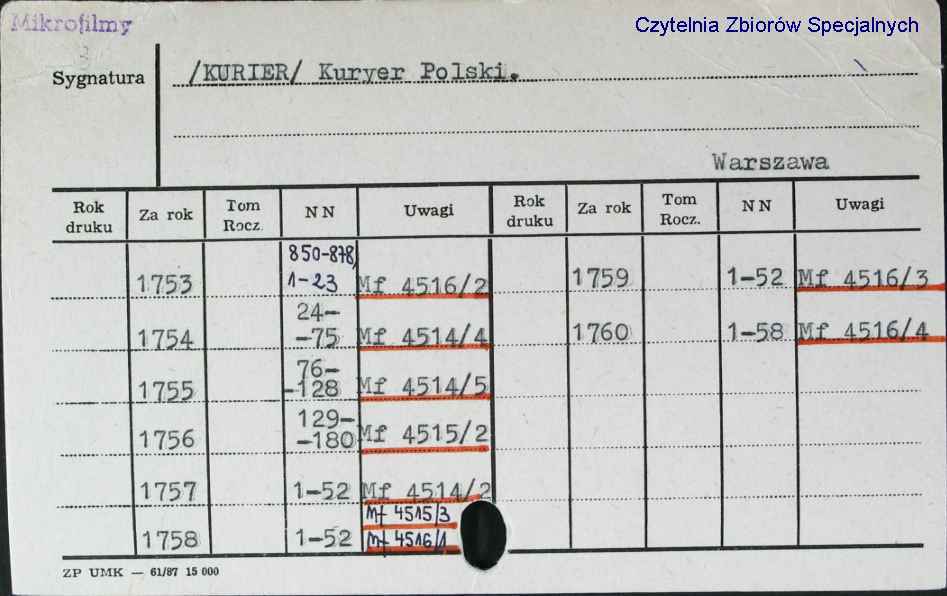 Mikrofilmy
Czytelnia Zbiorów Specjalnych
Sygnatura
/KURIER/ Kuryer Polski.
Warszawa
Rok druku Za rok Tom Rocz. NN Uwagi Rok druku Za rok Tom Rocz. NN Uwagi
1753 850-878, 1-23 Mf 4516/2 1759 1-52 Mf 4516/3
1754 24--75 Mf 4514/4 1760 1-58 Mf 4516/4
1755 76--128 Mf 4514/5
1756 129--180 Mf 4515/2
1757 1-52 Mf 4514/2
1758 1-52 Mf 4515/3 Mf 4516/1
ZP UMK — 61/87 15 000